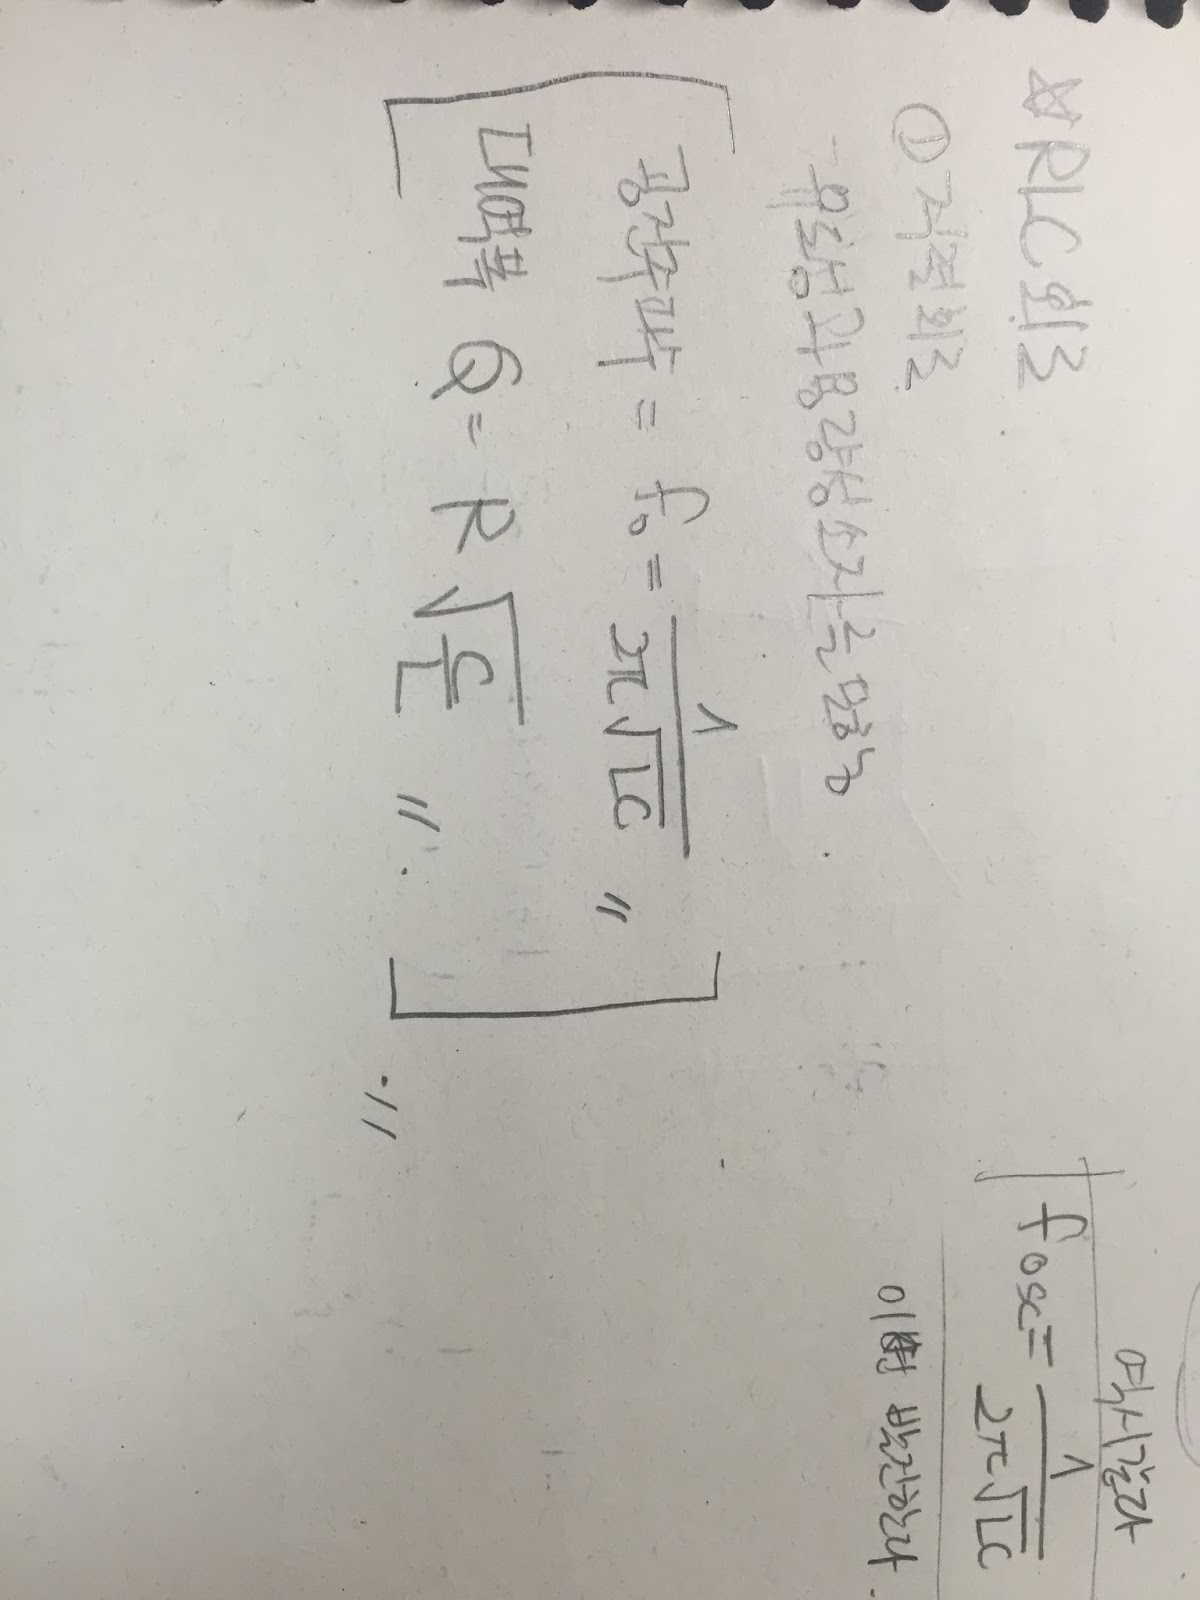 ☆ RLC 회로
① 직렬회로
- 유도성과 용량성 소자는 단층
공진주파수 = f₀ = 1/2π√LC 〃
대역폭 Q = R√C/L 〃.
.〃
역시 같다
fosc = 1/2π√LC
이때 발진한다.